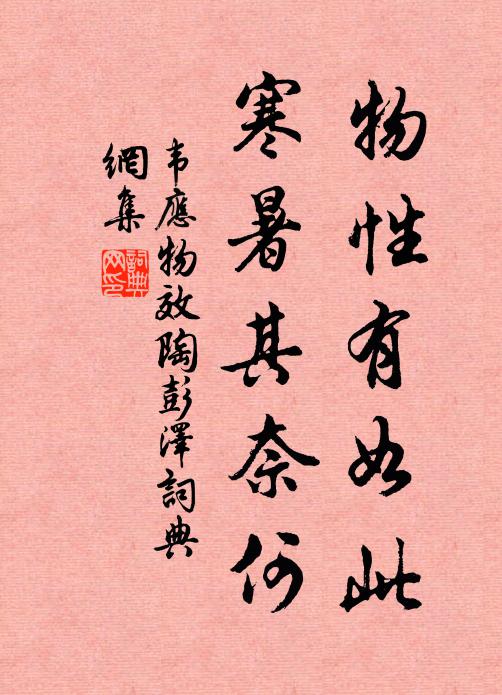 物性有如此
寒暑其奈何
韦應物效陶彭澤詞典
網集
詞典
网印